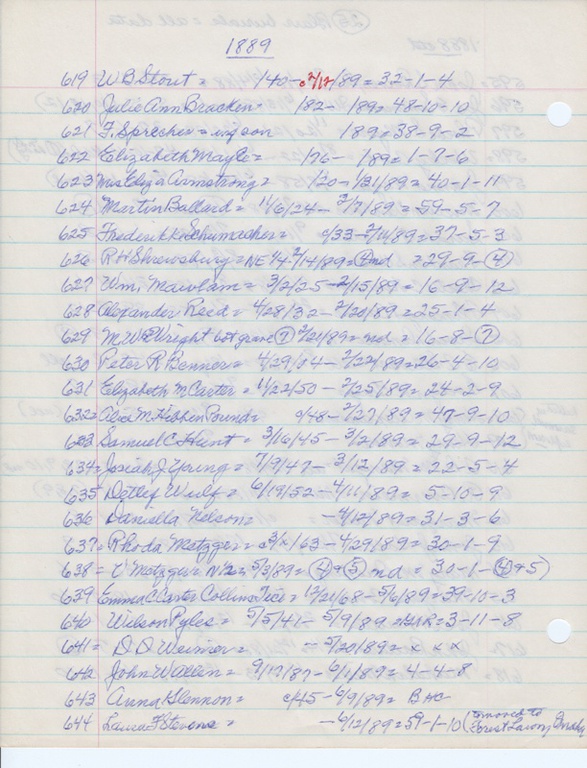 1889
619 W B Stout = /40 - c 2/12/89 = 32-1-4
620 Julie Ann Bracken = /82 - /89 = 48-10-10
621 F. Sprecher = inf son /89 = 38-9-2
622 Elizabeth Mayle = /76 - /89 = 1-7-6
623 Mrs Eliza Armstrong = /20 - 1/31/89 = 40-1-11
624 Martin Ballard = 11/6/24 - 2/7/89 = 59-5-7
625 Frederick Schumacher = c/33 - 2/11/89 = 37-5-3
626 R H Shrewsbury = NE 1/4 - 2/14/89 = 4 nd = 29-9-4
627 Wm. Mawlam = 3/2/25 - 2/15/89 = 16-9-12
628 Alexander Reed = 4/28/32 - 2/20/89 = 25-1-4
629 M. W R Wright bot grave 7 2/21/89 = nd = 16-8-7
630 Peter R Benner = 4/29/04 - 2/22/89 = 26-4-10
631 Elizabeth M Carter = 11/22/50 - 2/25/89 = 24-2-9
632 = Alice McKibben Pound = c/48 - 2/27/89 = 47-9-10
633 Samuel C Hunt = 3/16/45 - 3/2/89 = 29-9-12
634 = Josiah J Young = 7/9/47 - 3/12/89 = 22-5-4
635 Detlef Wulf = 6/19/52 - 4/11/89 = 5-10-9
636 Daniella Nelson = - 4/12/89 = 31-3-6
637 = Rhoda Metzger = c 3/x/63 - 4/29/89 = 30-1-9
638 = C Metzger N 1/2 = 5/3/89 = 4 & 5 nd = 30-1-4 & 5)
639 Emma C Carter Collins Tice = 12/21/68 - 5/6/89 = 39-10-3
640 Wilson Pyles = 5/5/41 - 5/9/89 = GAR = 3-11-8
641 = D D Weimer = - 5/20/89 = x x x
642 John Wallen = 9/17/87 - 6/1/89 = 4-4-8
643 Anna Glennon = c/45 - 6/9/89 = B
644 Laura F Stevens = - 6/12/89 = 59-1-10 (removed to Forest Lawn, Omaha